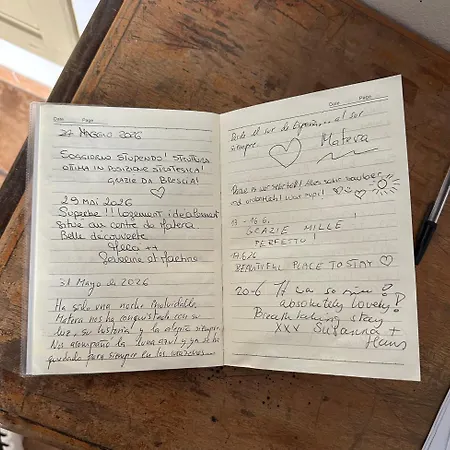 Date Page
27 MAGGIO 2026
SOGGIORNO STUPENDO! STRUTTURA
OTTIMA IN POSIZIONE STRATEGICA!
GRAZIE DA BRESCIA!
29 MAI 2026
Superbe!! Logement idéalement
situé au centre de Matera
Belle découverte
++
Séverine et Martine
31 Mayo de 2026
Ha sido una noche inolvidable.
Matera nos ha conquistado con su
luz, su historia y la alegría siempre.
Nos acompañó la luna azul y ya se ha
quedado para siempre en los corazones...
Date Page
Desde el sur de España... al sur
siempre
Matera
sehr sauber
und ordentlich!
13 - 16 6.
GRAZIE MILLE!
PERFETTO!
17.6.26
BEAUTIFUL PLACE TO STAY
20-6 It was so nice!
absolutely lovely!
Breathtaking stay
XXV Susanna +
Hans